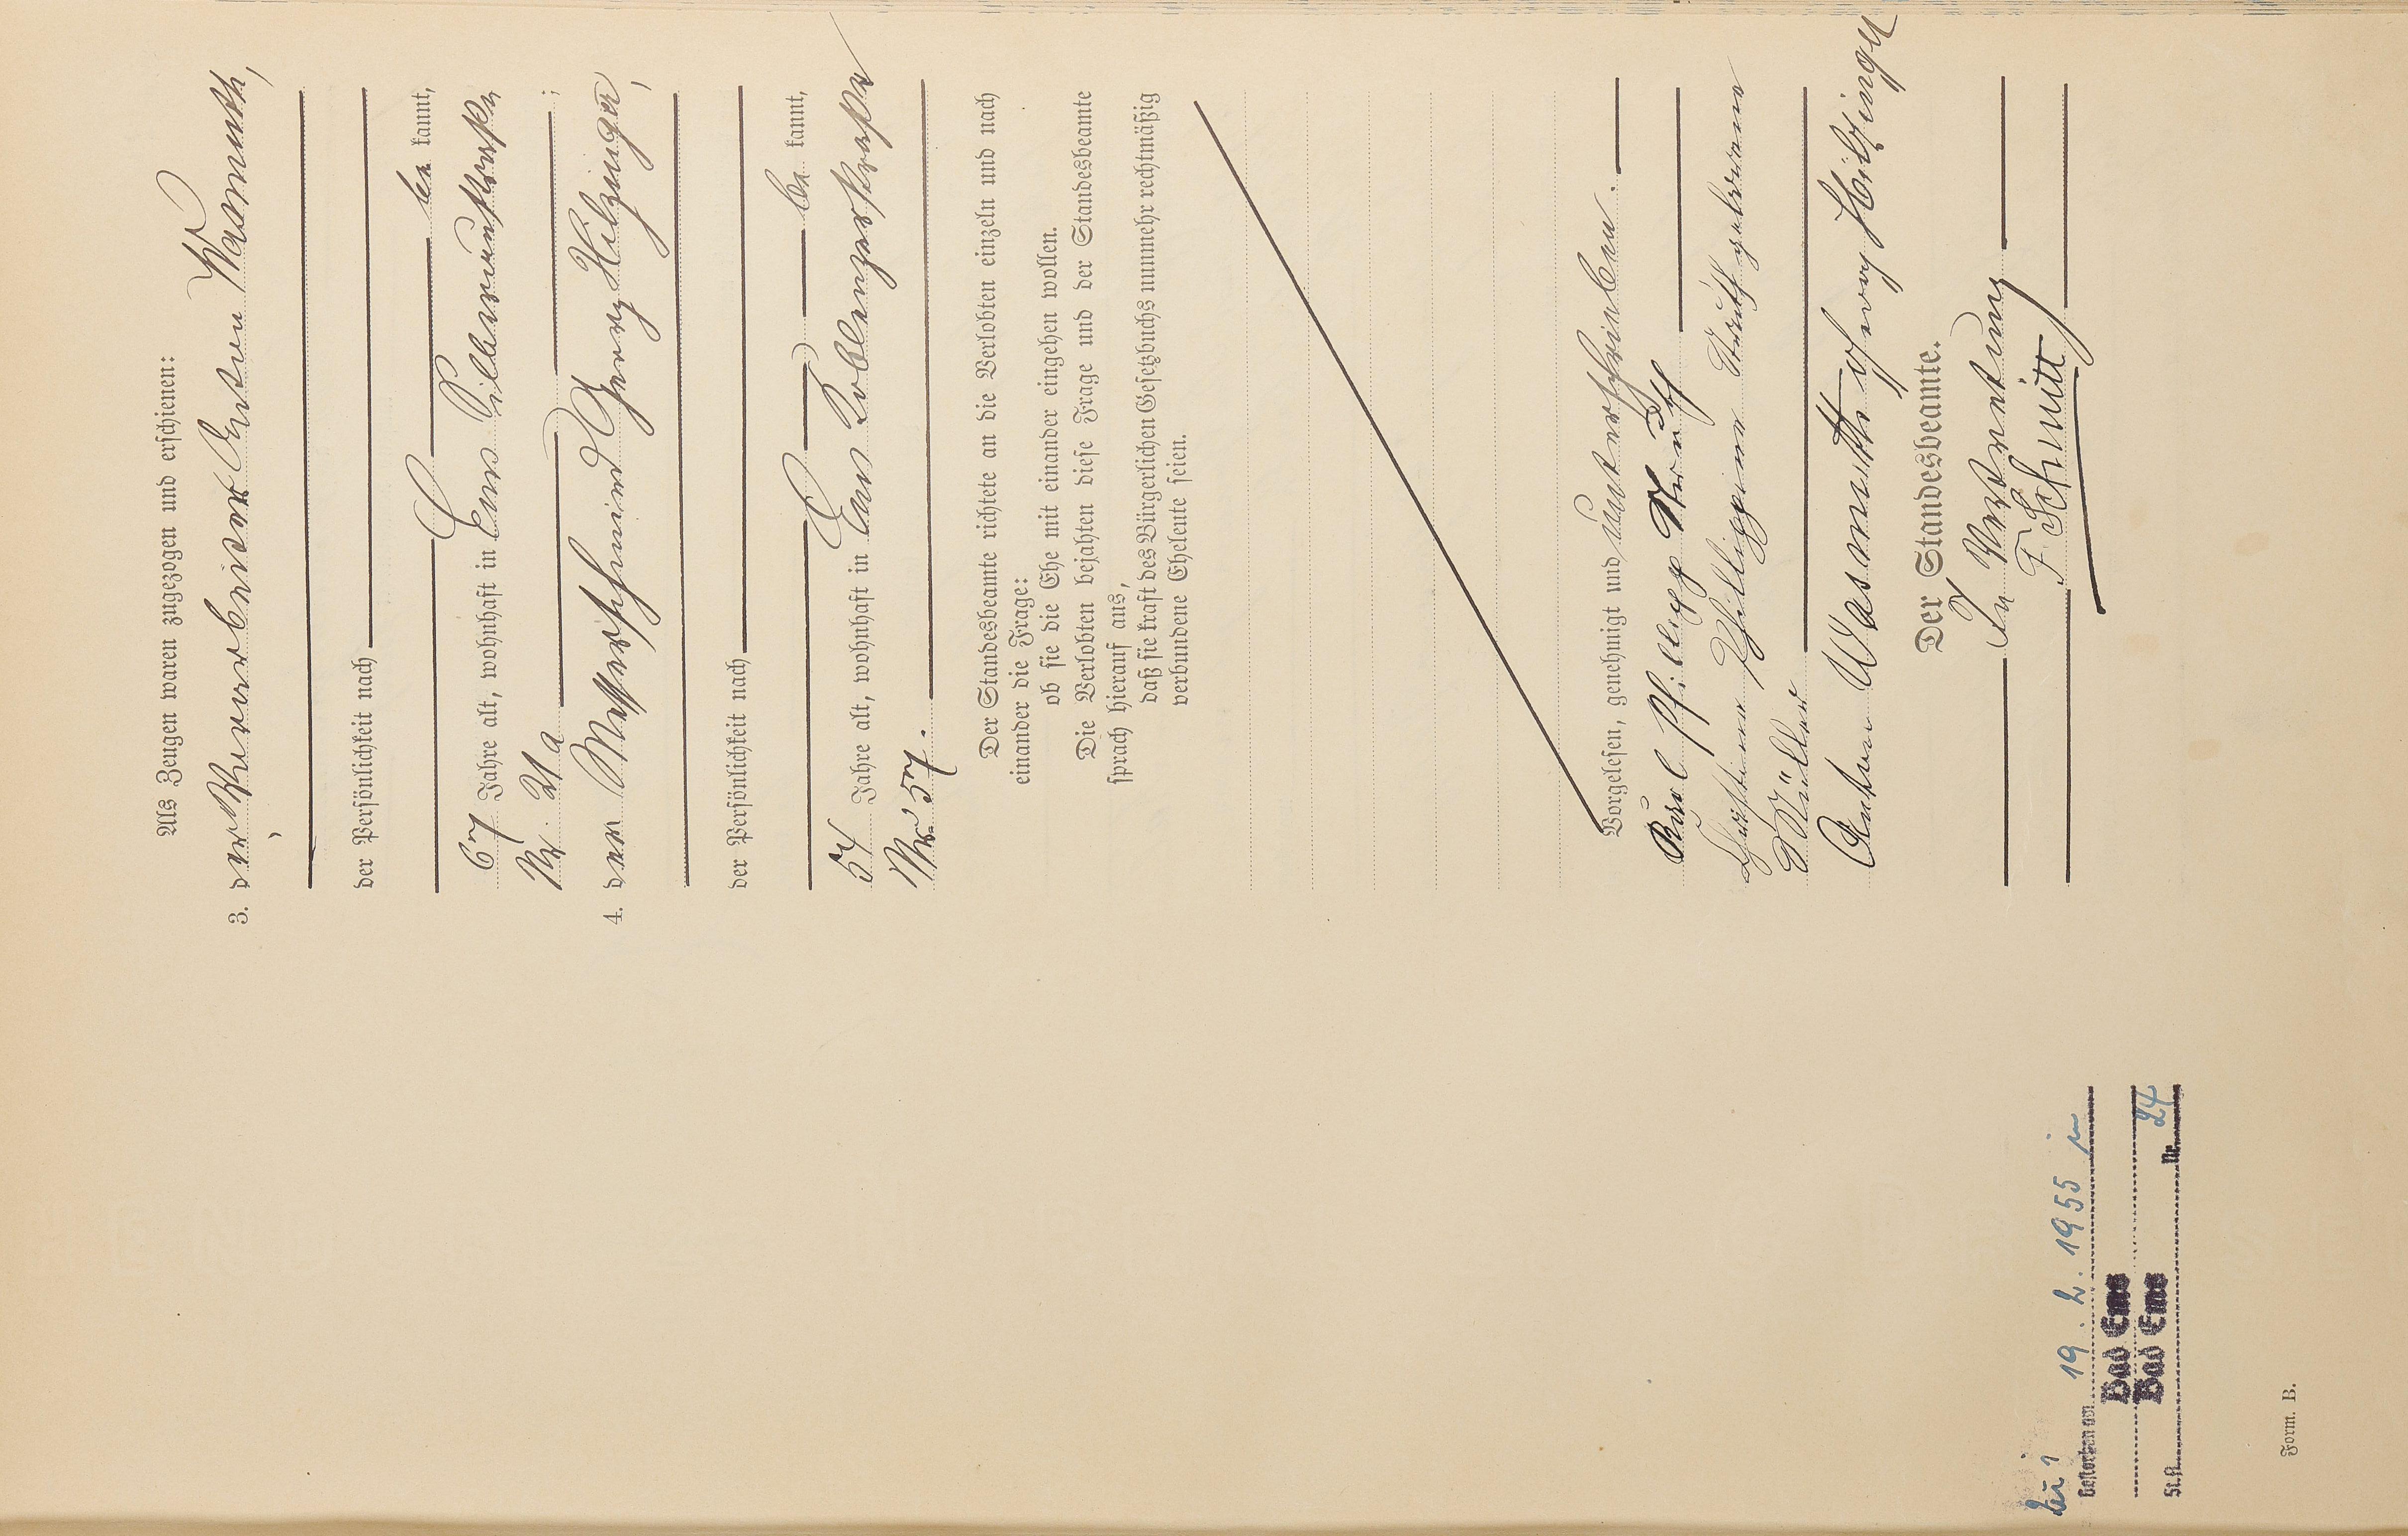 Als Zeugen waren zugezogen und erschienen:
3. der Bauarbeiter Anton Wasmuth,
der Persönlichkeit nach
be kannt,
67 Jahre alt, wohnhaft in Ems Silberaustraße
Nr. 21a ;
4. der Messerschmied Georg Hilzinger,
der Persönlichkeit nach
be kannt,
54 Jahre alt, wohnhaft in Ems Koblenzerstraße
Nr. 57.
Der Standesbeamte richtete an die Verlobten einzeln und nach
einander die Frage:
ob sie die Ehe mit einander eingehen wollen.
Die Verlobten bejahten diese Frage und der Standesbeamte
sprach hierauf aus,
daß sie kraft des Bürgerlichen Gesetzbuchs nunmehr rechtmäßig
verbundene Eheleute seien.
Vorgelesen, genehmigt und unterschrieben.
Karl Philipp
Philippine geborene
Müller
Anton Wasmuth Georg Hilzinger
Der Standesbeamte.
In Vertretung
F Schmitt
Gestorben am 19. 2. 1955 in
Bad Ems
Bad Ems
St.A. Nr. 24
Form. B.